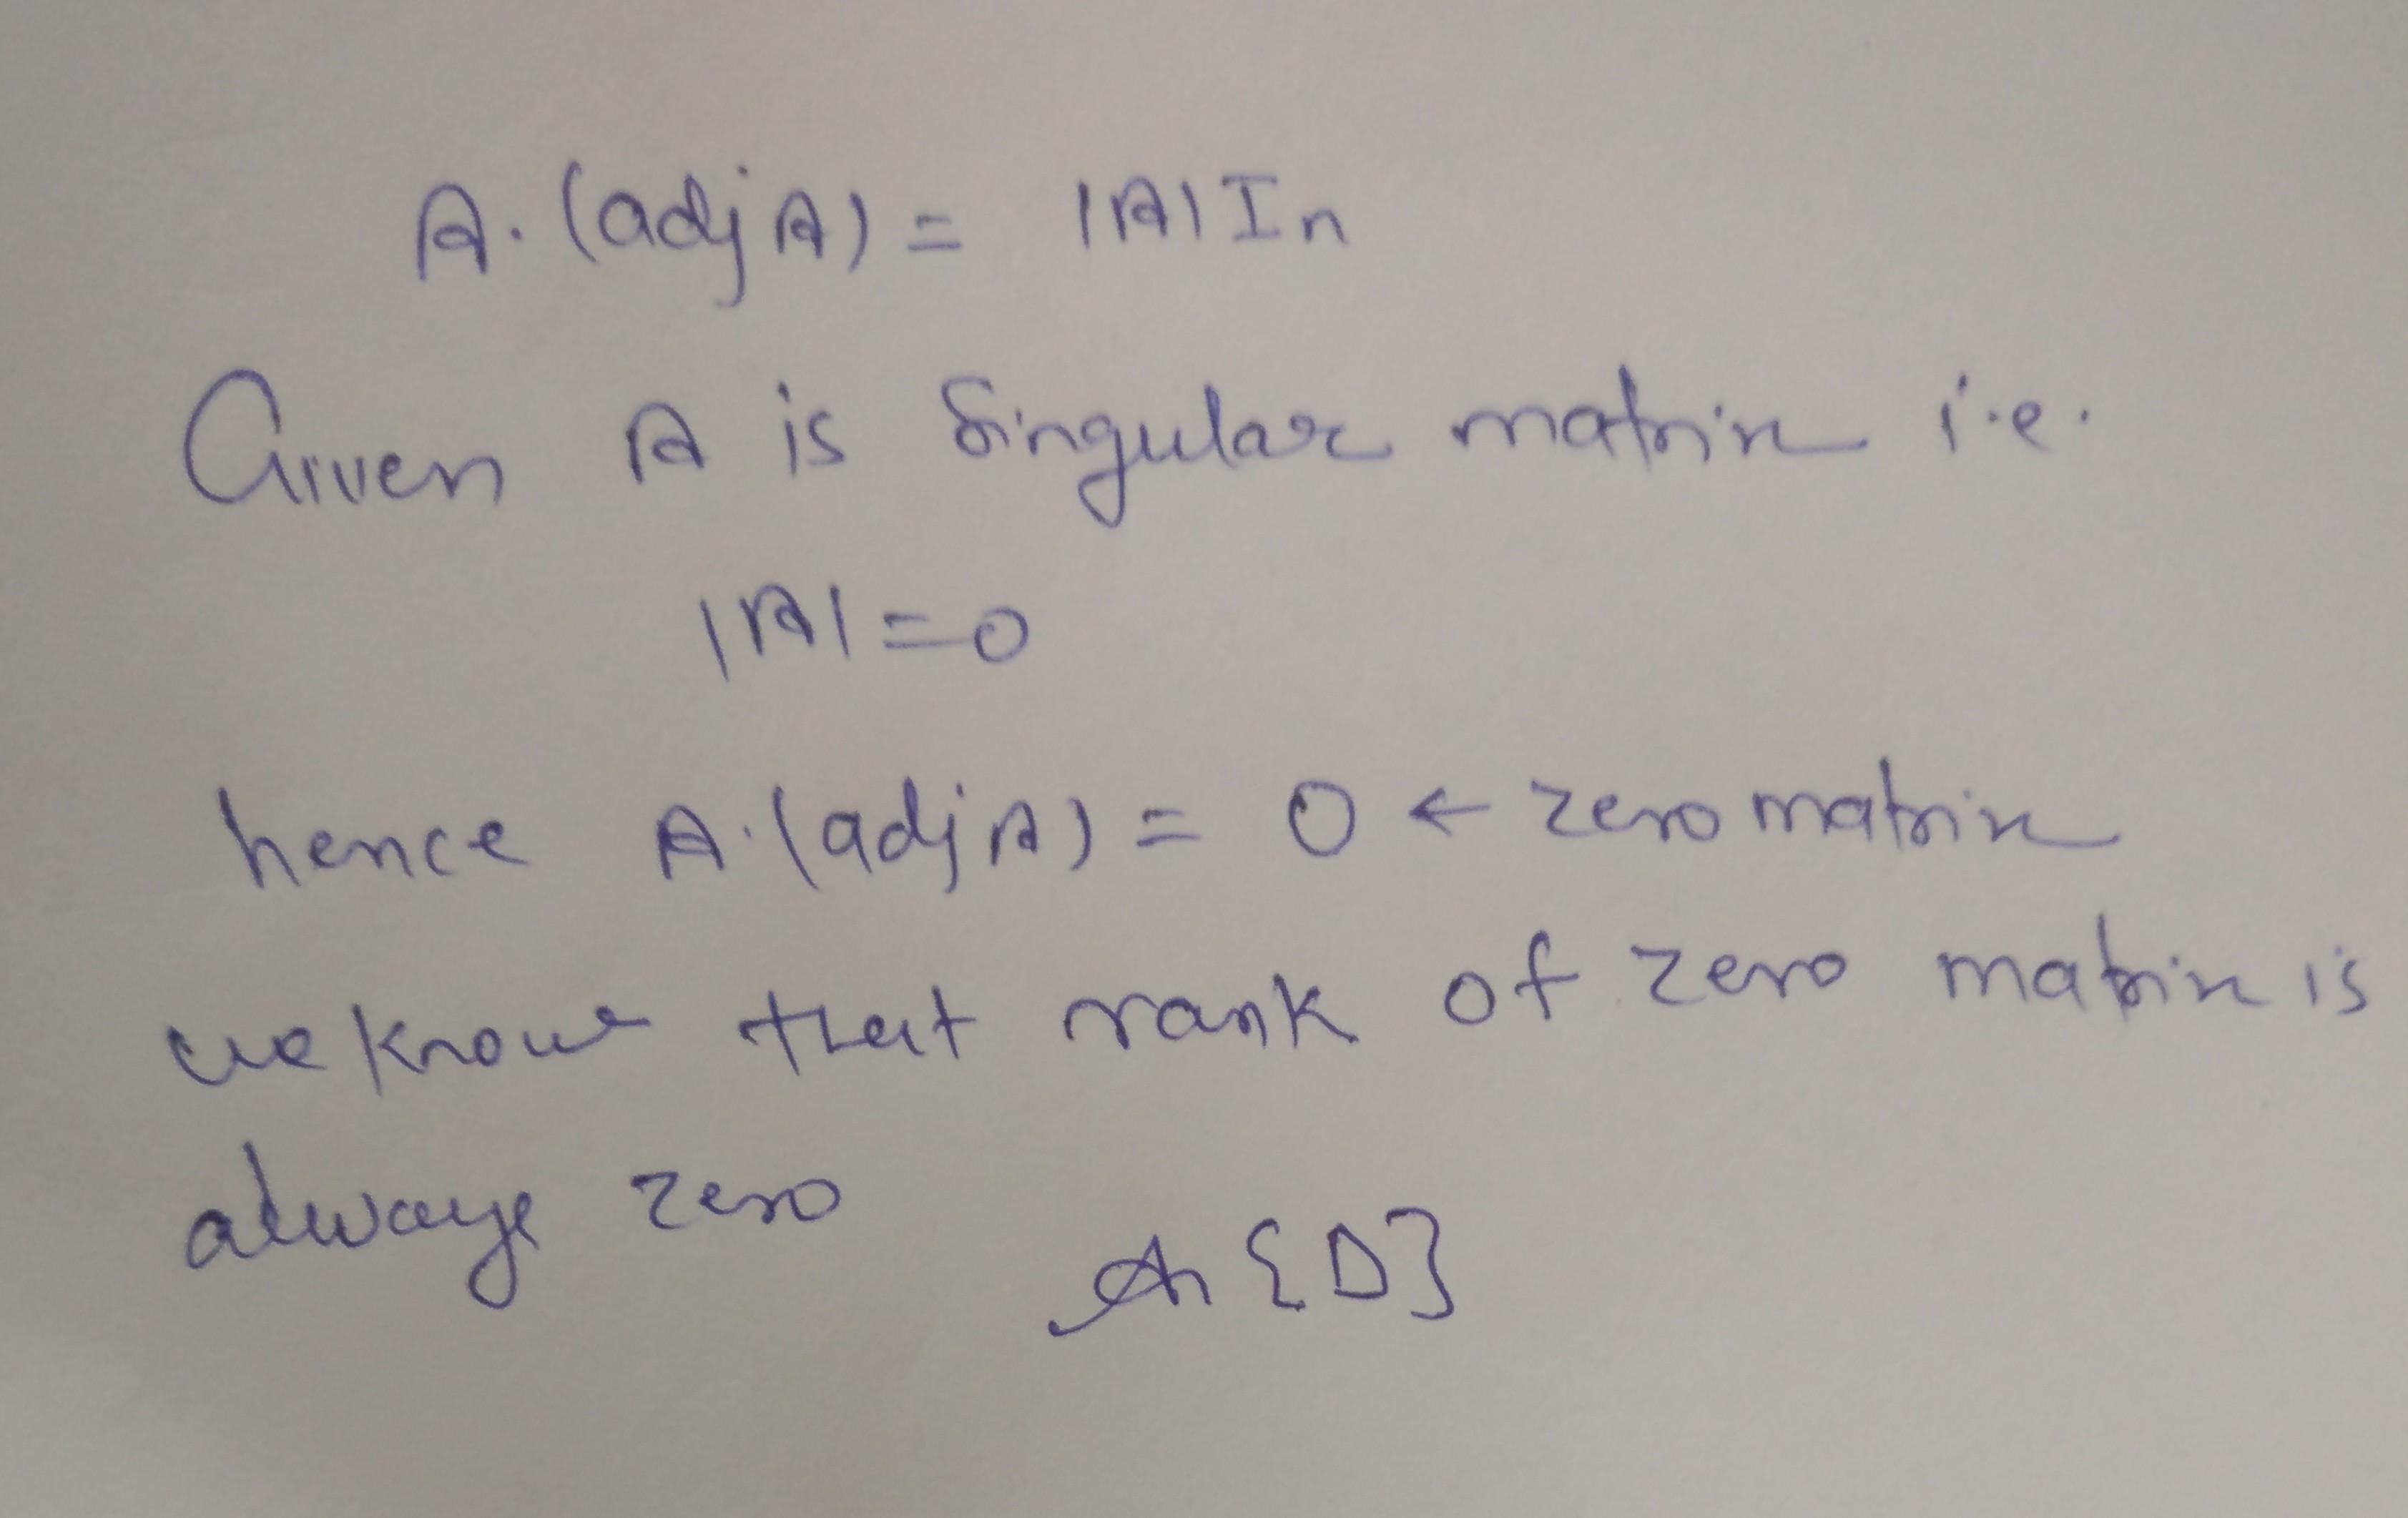 A. (adj A) = |A| In
Given A is Singular matrix i.e.
|A| = 0
hence A. (adj A) = 0 ← zero matrix
we know that rank of zero matrix is
always zero
An {D}